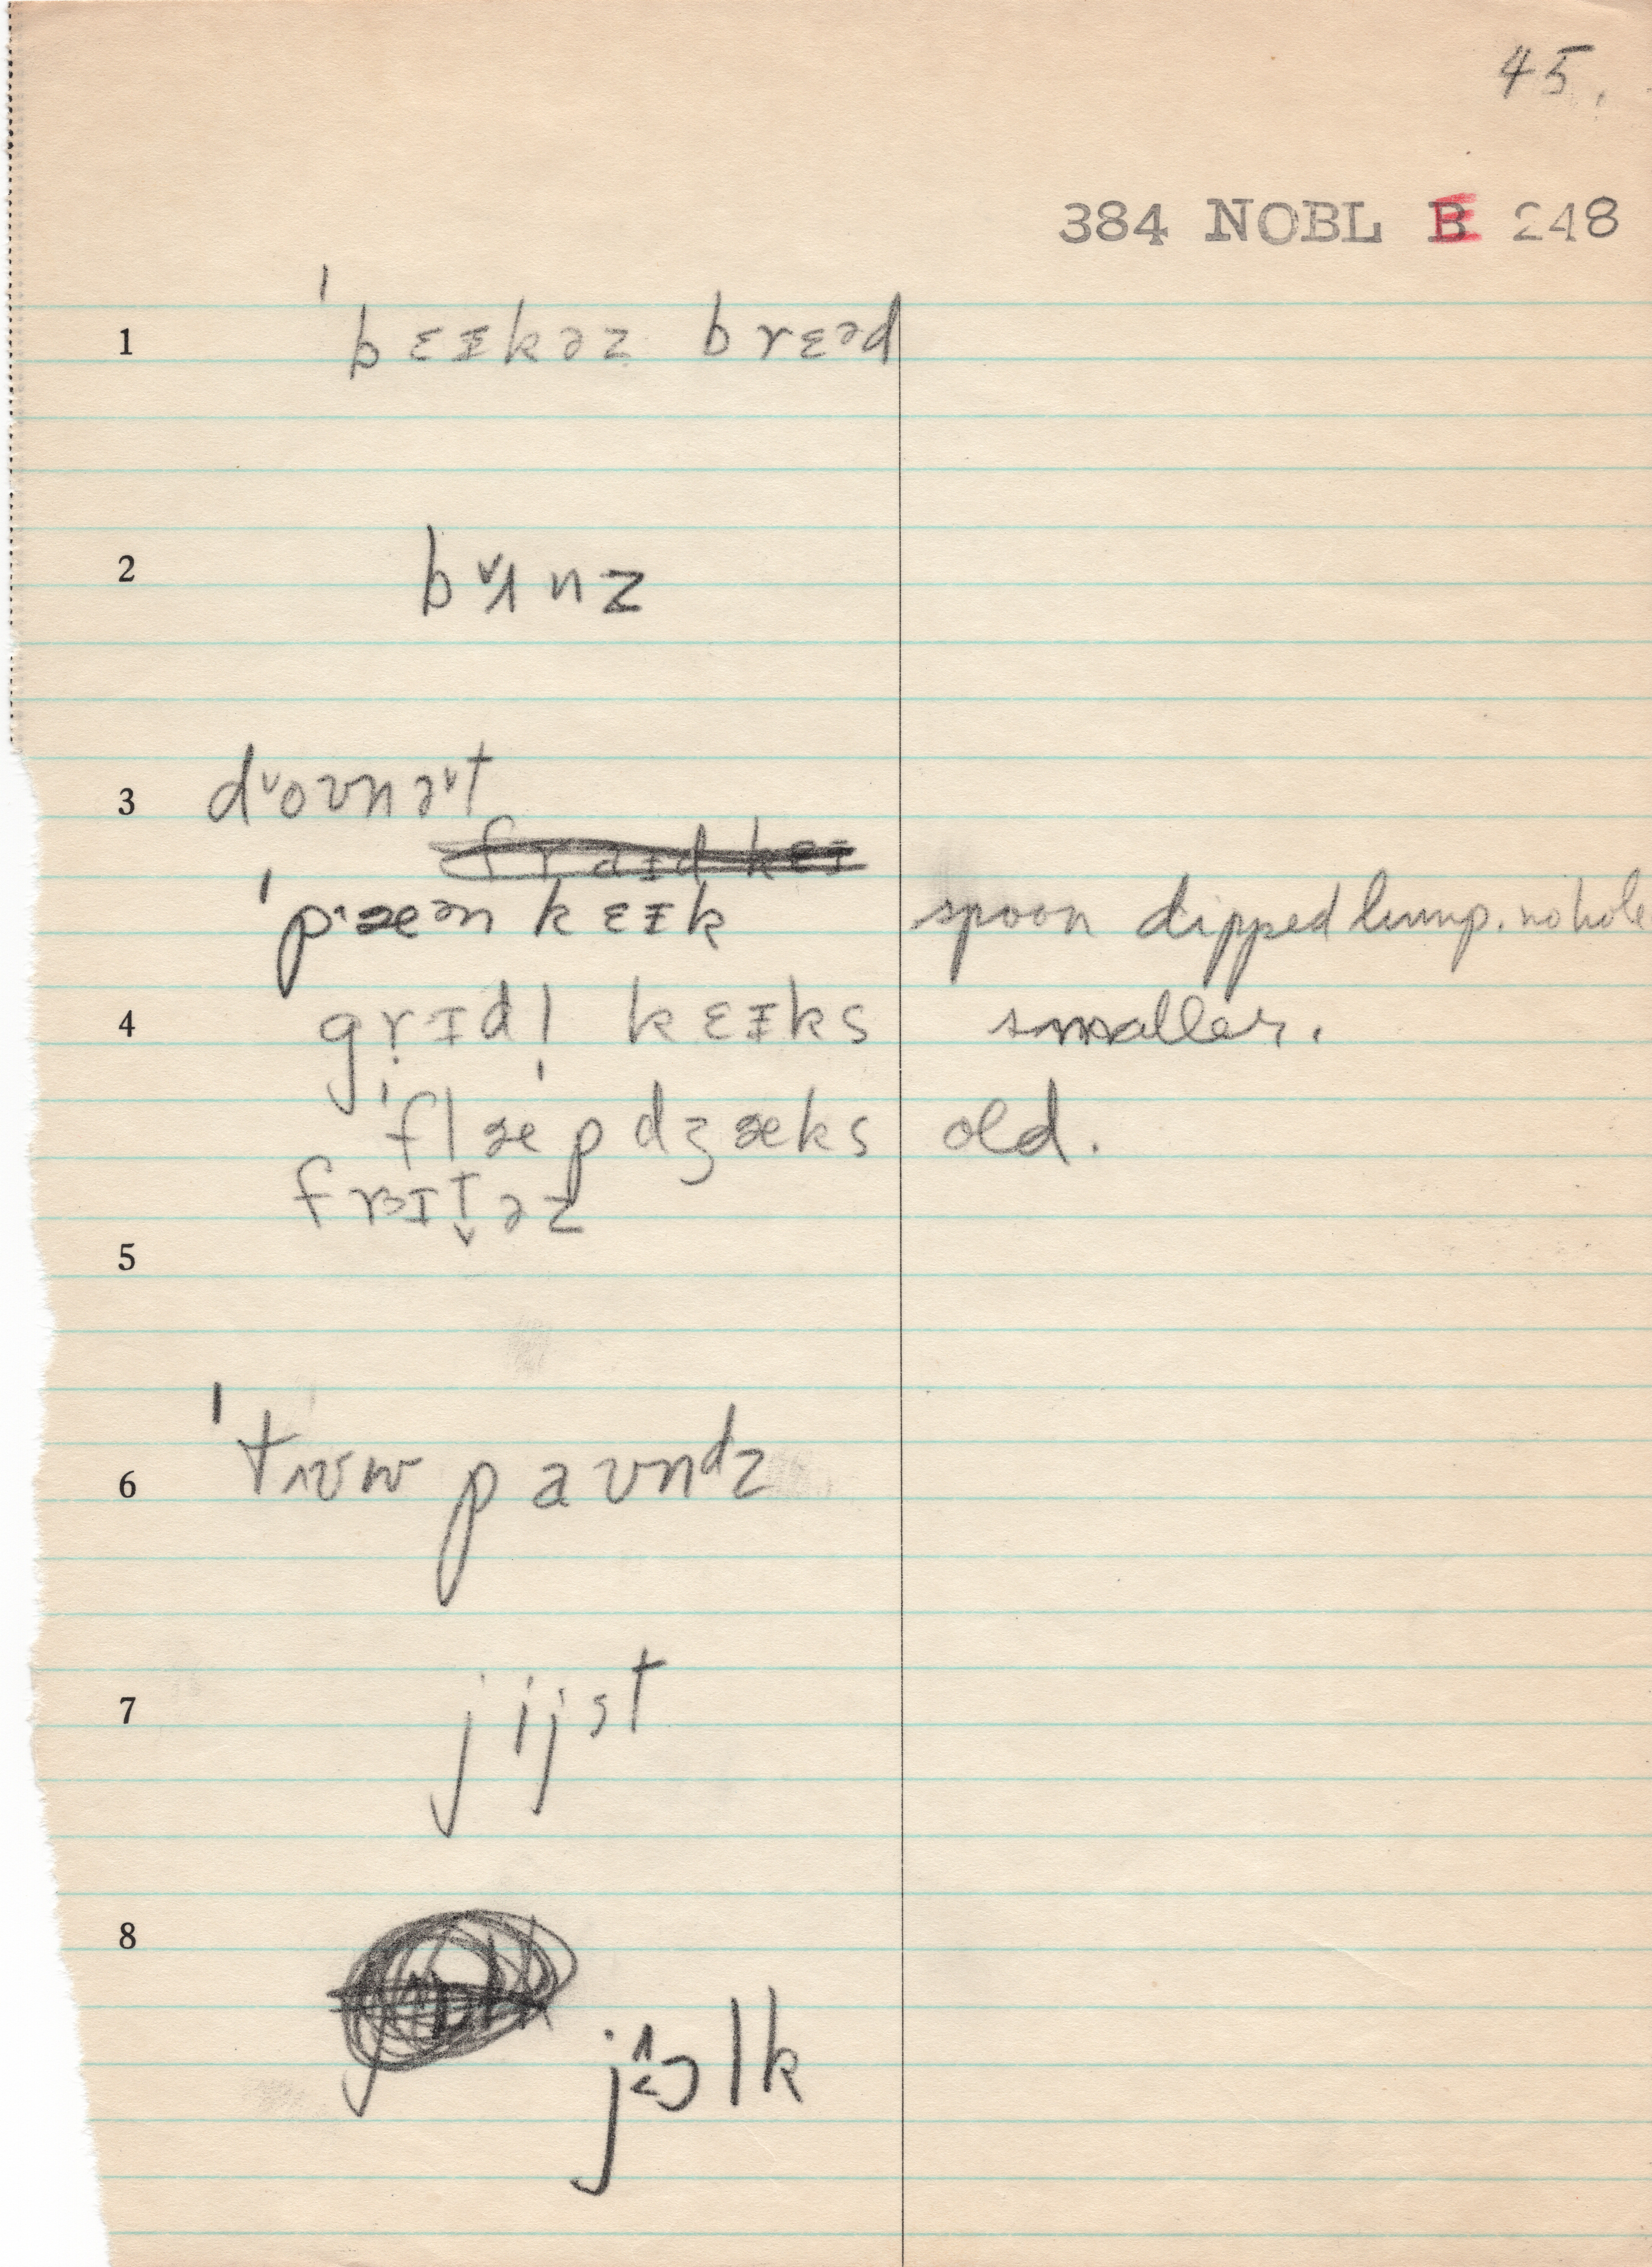 45.
384 NOBL E 248
1 ˈbɛɪkəz brɛəd
2 bʌ˅nz
3 d˅oʊnə˅t
ˈpæən kɛɪk spoon dipped lump. no hole
4 grɪdl̩ kɛɪks smaller.
ˈflæpdʒæks old.
frɪt̬əz
5
6 ˈtʊw paʊndz
7 jijst
8 jɔlk